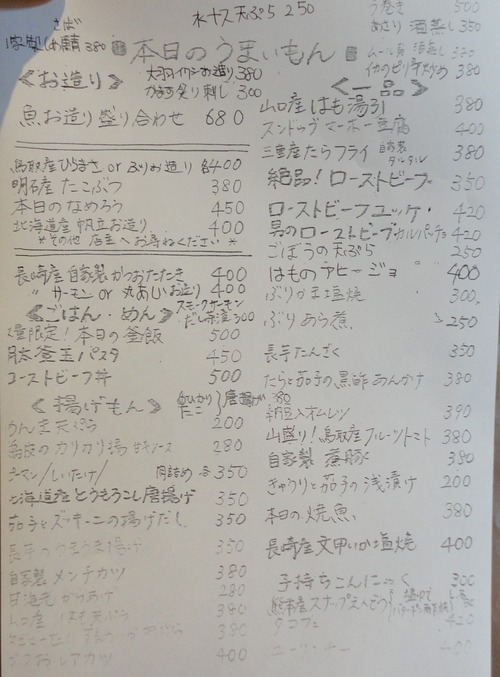 水ナス天ぷら 250
さば
自家製しめ鯖 380
本日のうまいもん
《お造り》
大羽イワシお造り 380
かます炙り刺し 300
魚お造り盛り合わせ 680
鳥取産ひらまさ or ぶりお造り 各400
明石産 たこぶつ 380
本日のなめろう 450
北海道産 帆立お造り 400
*その他 店主へお尋ねください*
長崎産 自家製かつおたたき 400
〃 サーモン or 丸あじお造り 400
《ごはん・めん》
スモークサーモン
だし茶漬 300
数量限定！本日の釜飯 500
明太釜玉パスタ 450
ローストビーフ丼 500
《揚げもん》
たこ 唐揚げ 380
天ぷら 200
カリカリ揚 280
ピーマン/しいたけ/ 肉詰め 各350
北海道産とうもろこし唐揚げ 350
茄子とズッキーニの揚げだし 350
長芋の 揚げ 350
自家製メンチカツ 380
280
山口産 はも天ぷら 380
380
レアカツ 400
う巻き 500
あさり 酒蒸し 350
ムール貝 酒蒸し
イカのピリ辛炒め 380
《一品》
山口産はも湯引 380
スンドゥブマーボー豆腐 400
三重産たらフライ 自家製タルタル 380
絶品！ローストビーフ 350
ローストビーフユッケ 420
男のローストビーフカルパッチョ 420
ごぼうの天ぷら 250
はものアヒージョ 400
ぶりかま塩焼 300
ぶりあら煮 250
長芋たんざく 350
たらと茄子の黒酢あんかけ 380
納豆入オムレツ 390
山盛り！鳥取産フルーツトマト 380
自家製 蒸豚 380
きゅうりと茄子の浅漬け 200
本日の焼魚 380
長崎産文甲いか塩焼 400
子持ちこんにゃく 300
熊本産スナップえんどう
420
400